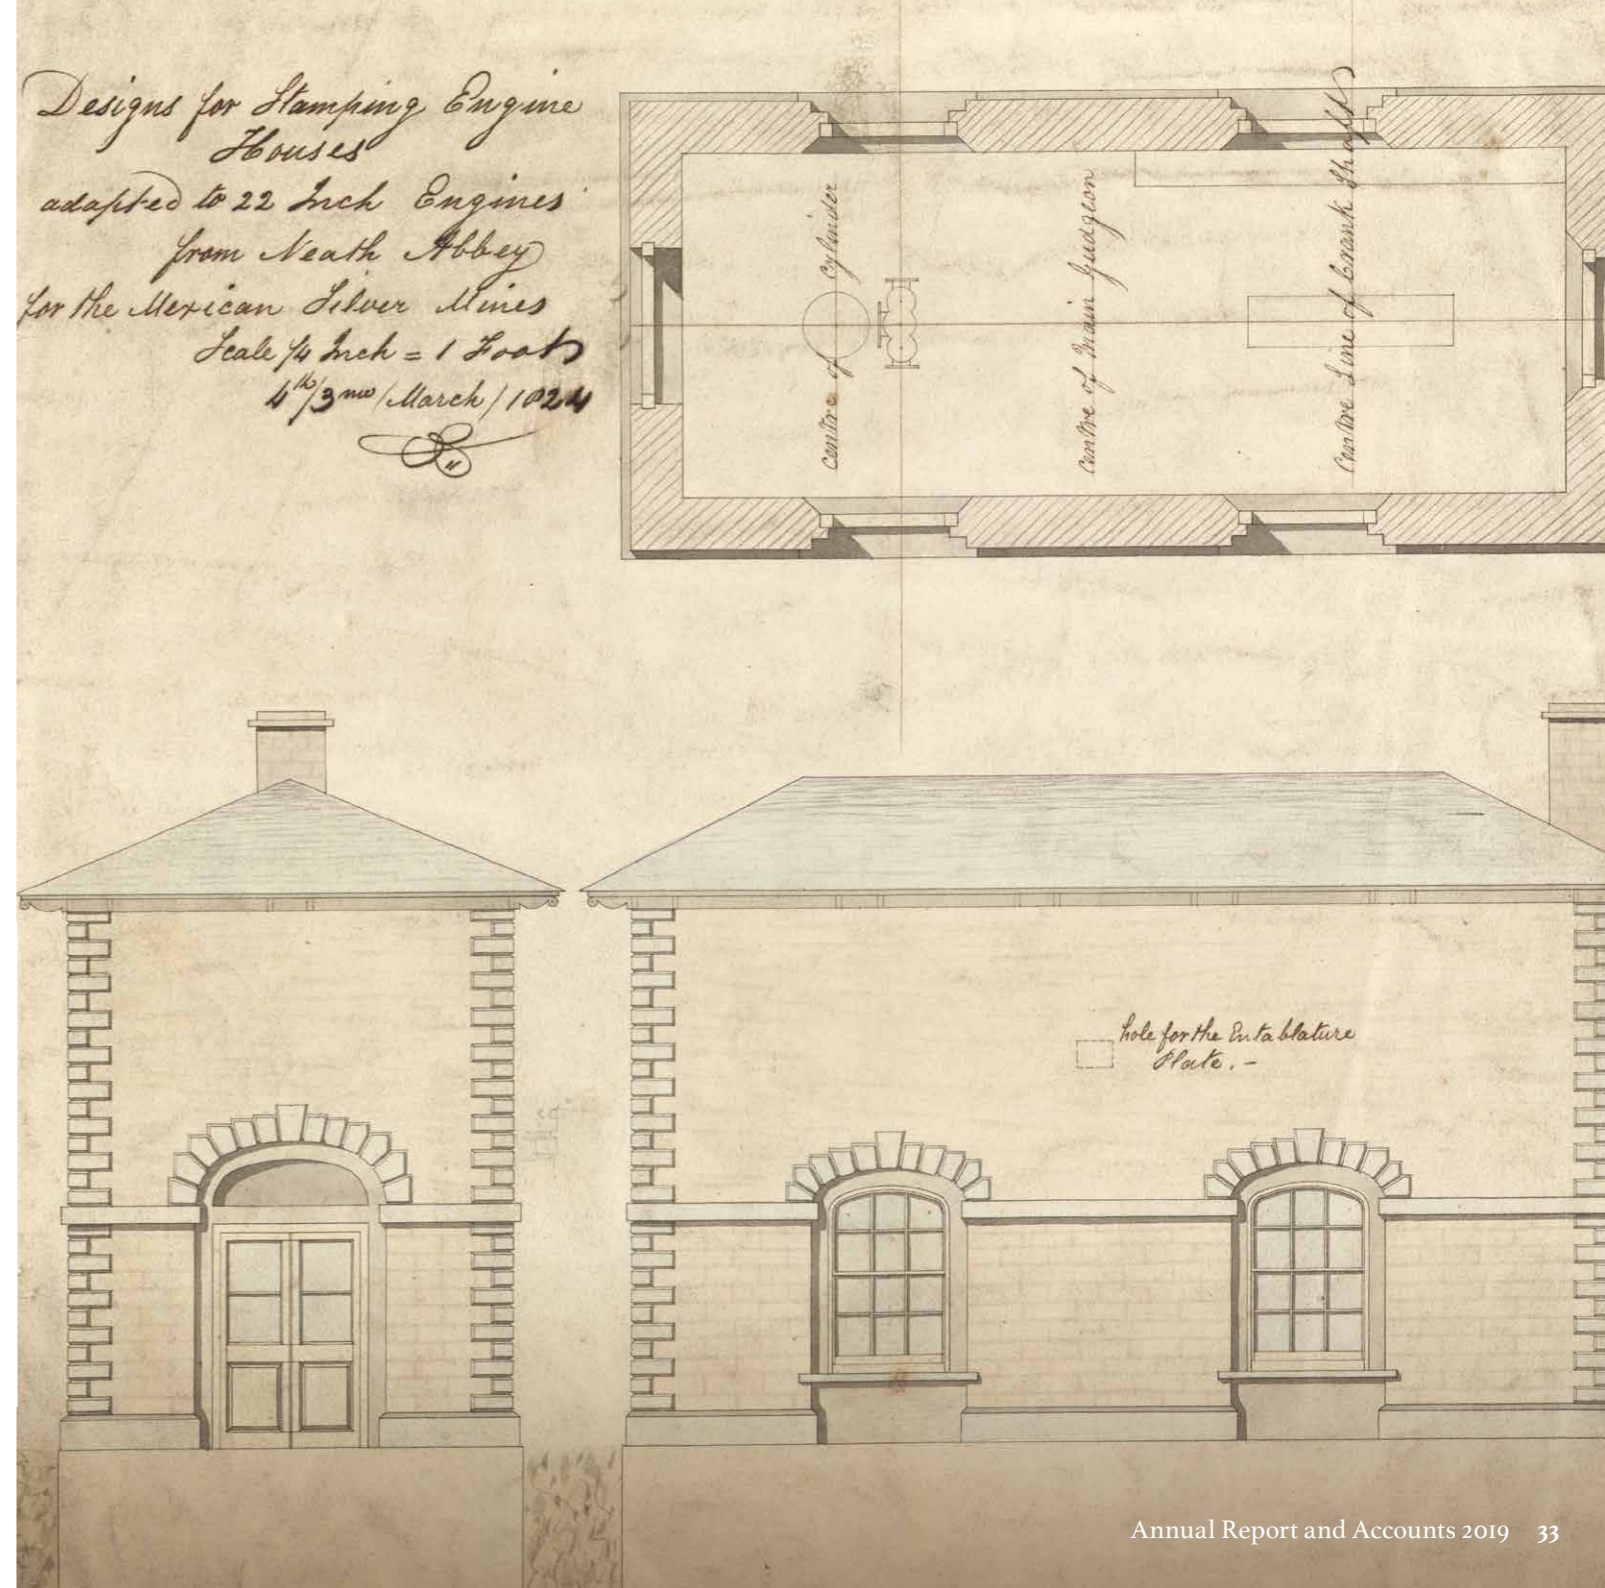 Designs for Stamping Engine
Houses
adapted to 22 Inch Engines
from Neath Abbey
for the Mexican Silver Mines
Scale 1/4 Inch = 1 Foot
4th/3mo/March/1824
centre of cylinder
centre of main gudgeon
centre line of crank shaft
hole for the Entablature
Plate. -
Annual Report and Accounts 2019 33